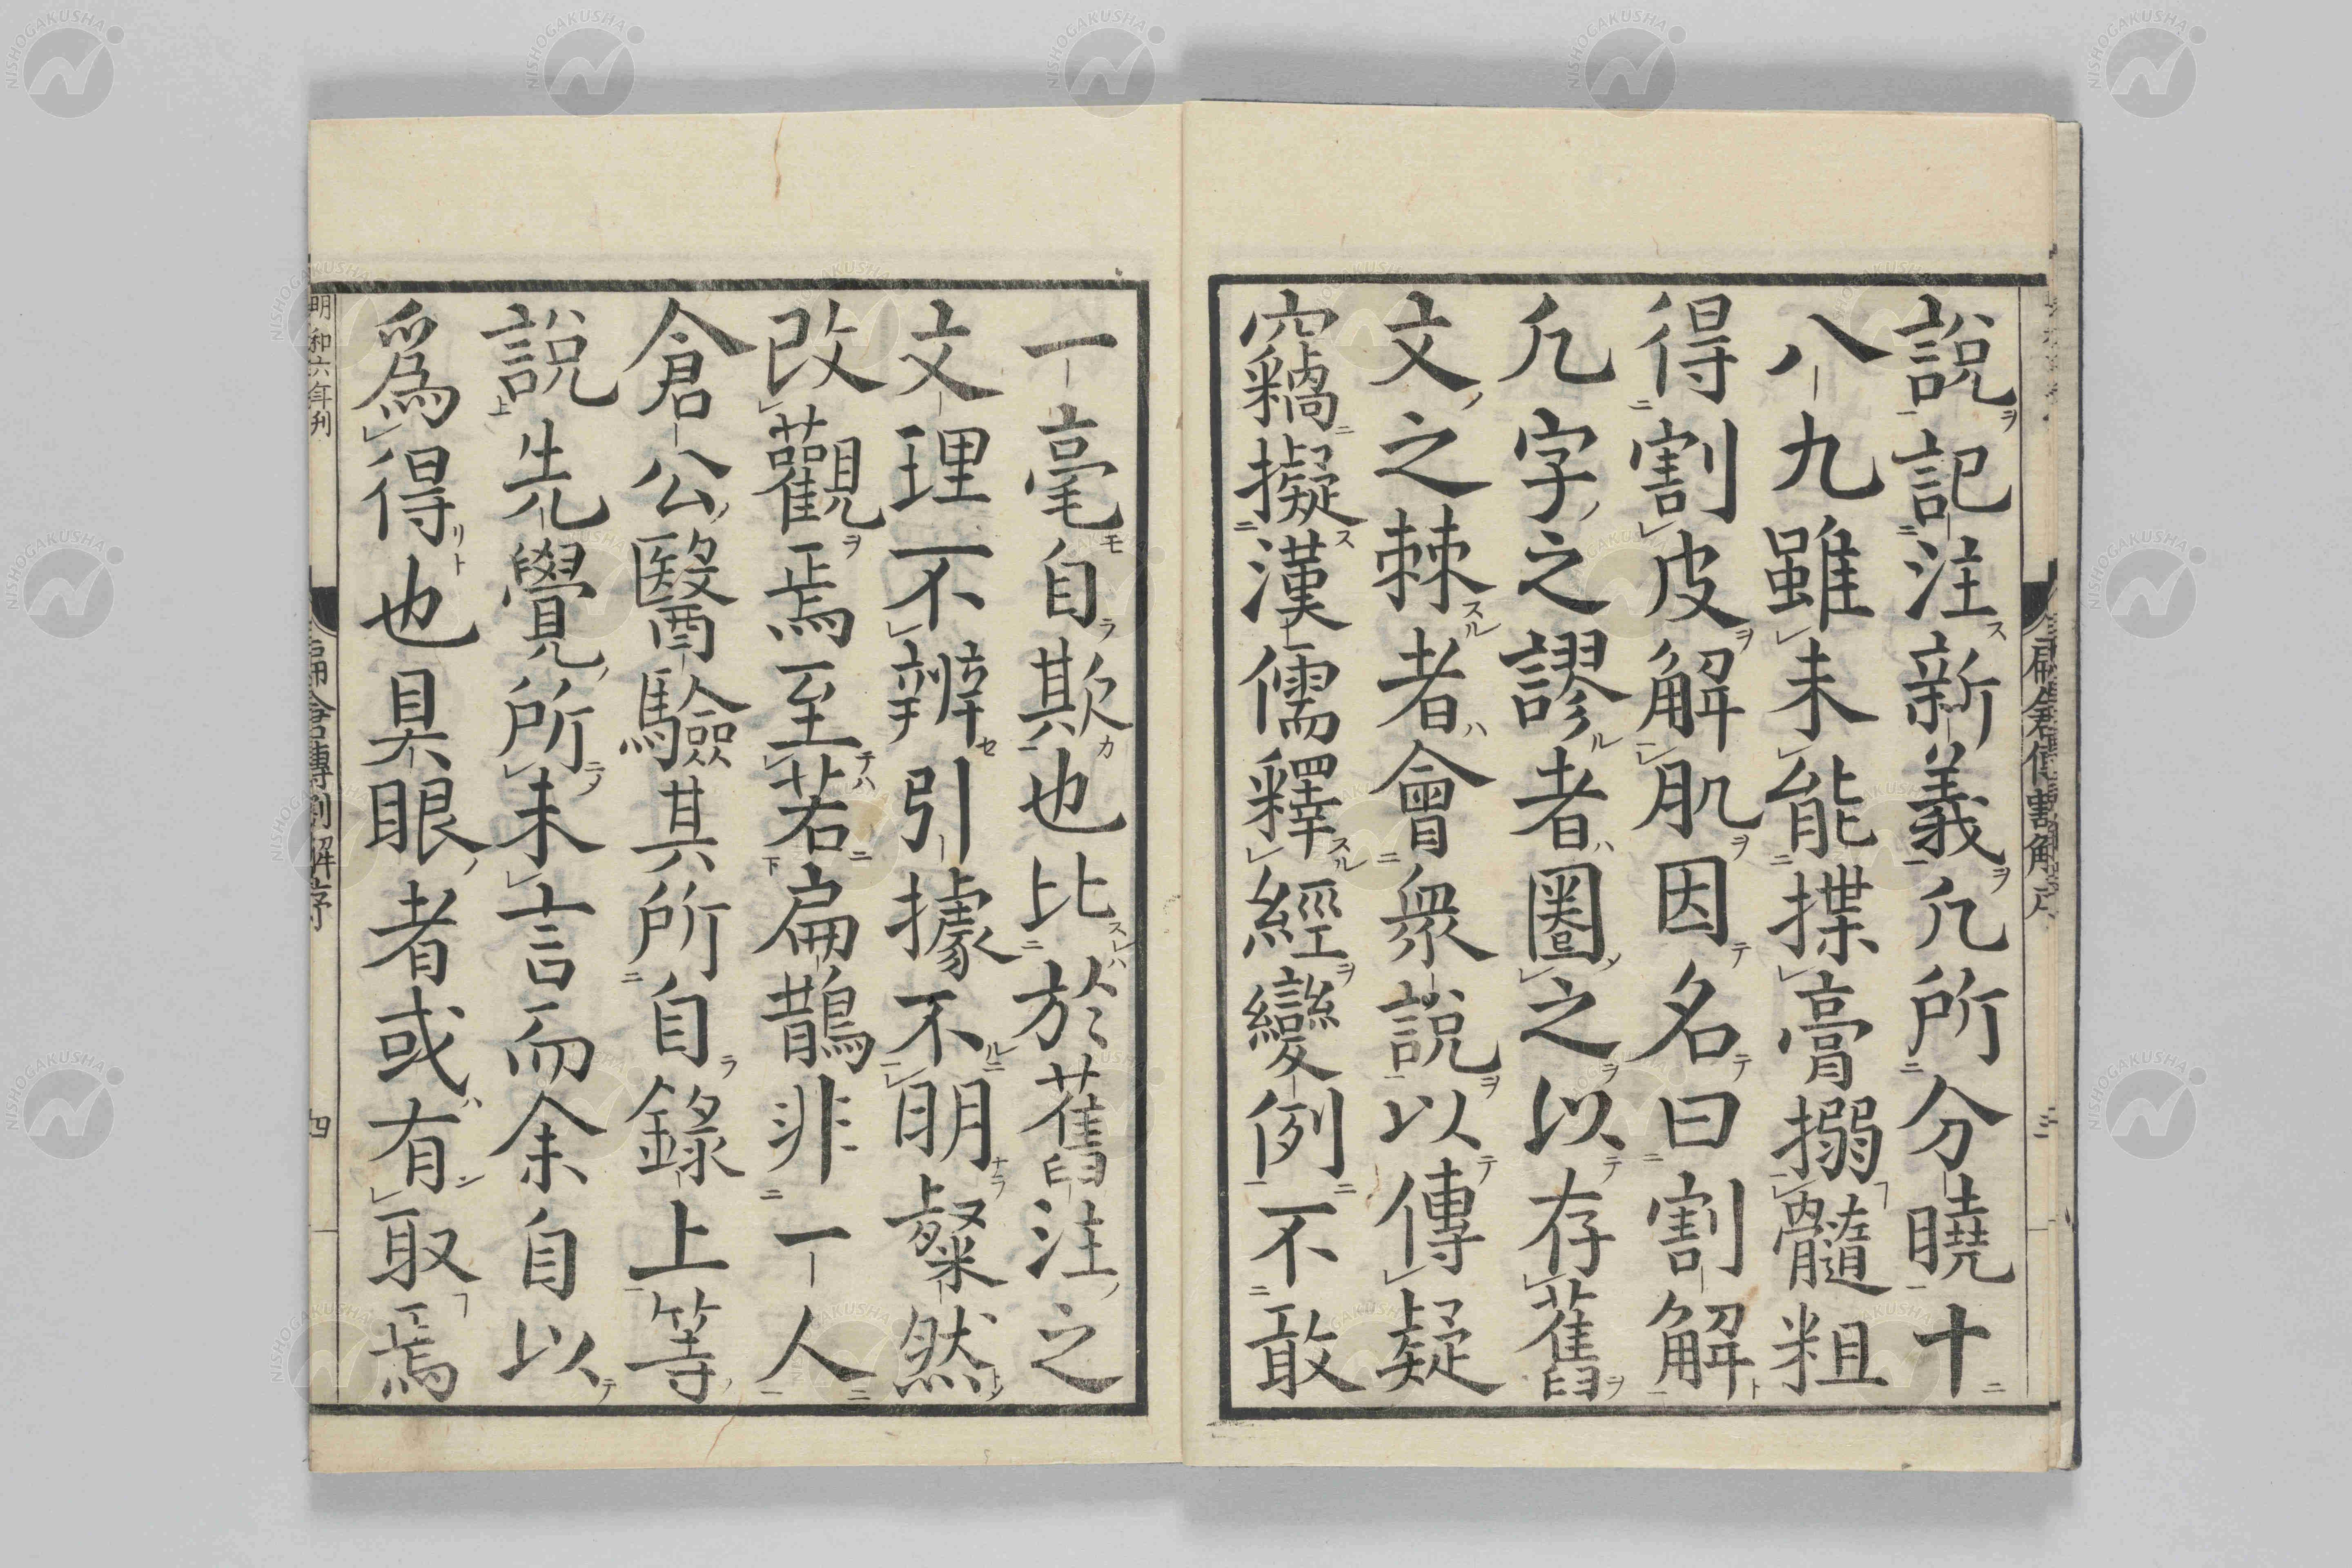 説記注新義凢所分曉十
八九雖未能揲膏搦髓粗
得割皮解肌因名曰割解
凢字之謬者圈之以存舊
文之棘者會衆説以傳疑
竊擬漢儒釋經變例不敢
一毫自欺也比於舊注之
文理不辨引據不明粲然
改觀焉至若扁鵲非一人
倉公醫驗其所自錄上等
説先覺所未言而余自以
爲得也具眼者或有取焉
明和六年刋
扁倉傳割解序
四
NISHOGAKUSHA